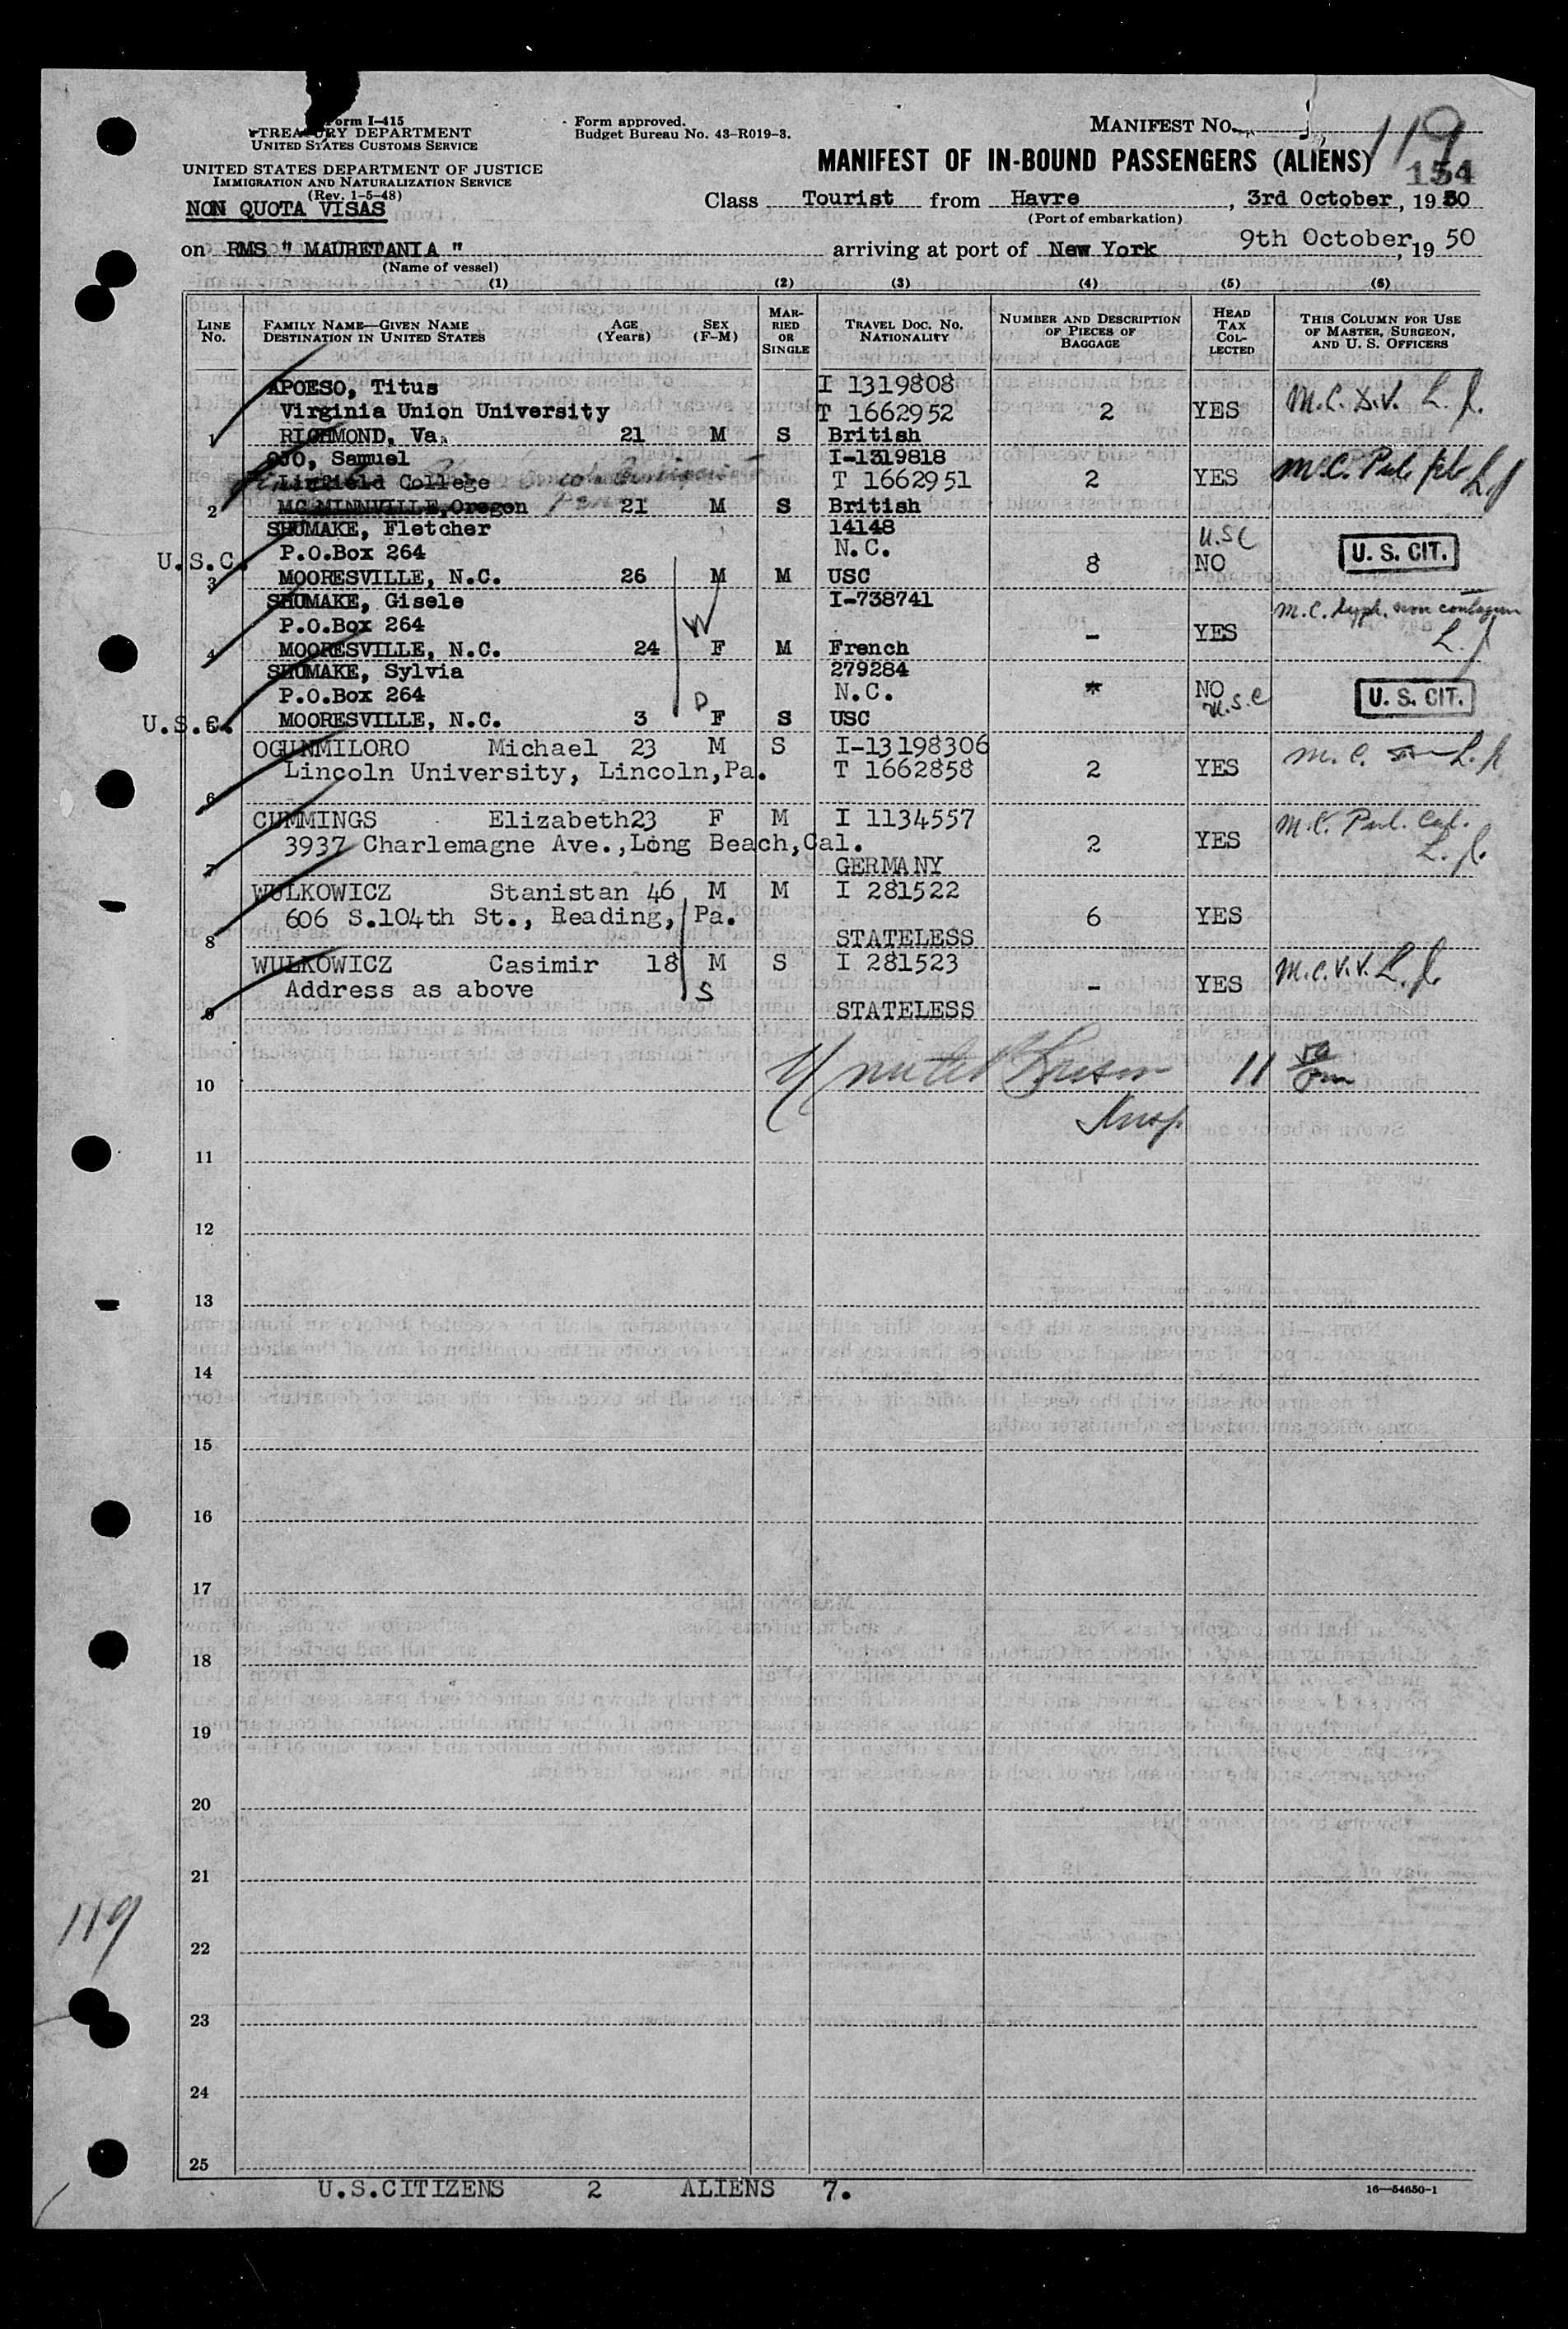 Form I-415
TREASURY DEPARTMENT
UNITED STATES CUSTOMS SERVICE
UNITED STATES DEPARTMENT OF JUSTICE
IMMIGRATION AND NATURALIZATION SERVICE
(Rev. 1-5-48)
NON QUOTA VISAS
Form approved.
Budget Bureau No. 43-R019-3.
MANIFEST NO. 119
MANIFEST OF IN-BOUND PASSENGERS (ALIENS)
154
Class Tourist from Havre, 3rd October, 1950
(Port of embarkation)
on RMS " MAURETANIA " arriving at port of New York 9th October, 19 50
(Name of vessel)
(1) (2) (3) (4) (5) (6)
LINE No. FAMILY NAME—GIVEN NAME DESTINATION IN UNITED STATES AGE (Years) SEX (F-M) MARRIED OR SINGLE TRAVEL DOC. NO. NATIONALITY NUMBER AND DESCRIPTION OF PIECES OF BAGGAGE HEAD TAX COLLECTED THIS COLUMN FOR USE OF MASTER, SURGEON, AND U. S. OFFICERS
APOESO, Titus I 1319808
Virginia Union University T 1662952 2 YES M.C.
1 RICHMOND, Va. 21 M S British
OJO, Samuel I-1319818
Linfield College T 1662951 2 YES M.C.
2 MC MINNVILLE, Oregon 21 M S British
SHUMAKE, Fletcher 14148 U.S.C
U.S.C. P.O.Box 264 N.C. 8 NO U. S. CIT.
3 MOORESVILLE, N.C. 26 M M USC
SHUMAKE, Gisele I-738741 M.C. non
P.O.Box 264 W - YES
4 MOORESVILLE, N.C. 24 F M French
SHUMAKE, Sylvia 279284
P.O.Box 264 D N.C. * NO U.S.C U. S. CIT.
U.S.C. 5 MOORESVILLE, N.C. 3 F S USC
OGUNMILORO Michael 23 M S I-13198306
6 Lincoln University, Lincoln,Pa. T 1662858 2 YES M.C.
CUMMINGS Elizabeth 23 F M I 1134557 M.C.
3937 Charlemagne Ave.,Long Beach,Cal. 2 YES
7 GERMANY
WULKOWICZ Stanistan 46 M M I 281522
606 S.104th St., Reading, Pa. 6 YES
8 STATELESS
WULKOWICZ Casimir 18 M S I 281523
Address as above S - YES M.C.V.V.
9 STATELESS
10
Insp.
11
12
13
14
15
16
17
18
19
20
21
119
22
23
24
25
U.S.CITIZENS 2 ALIENS 7.
16—54650-1